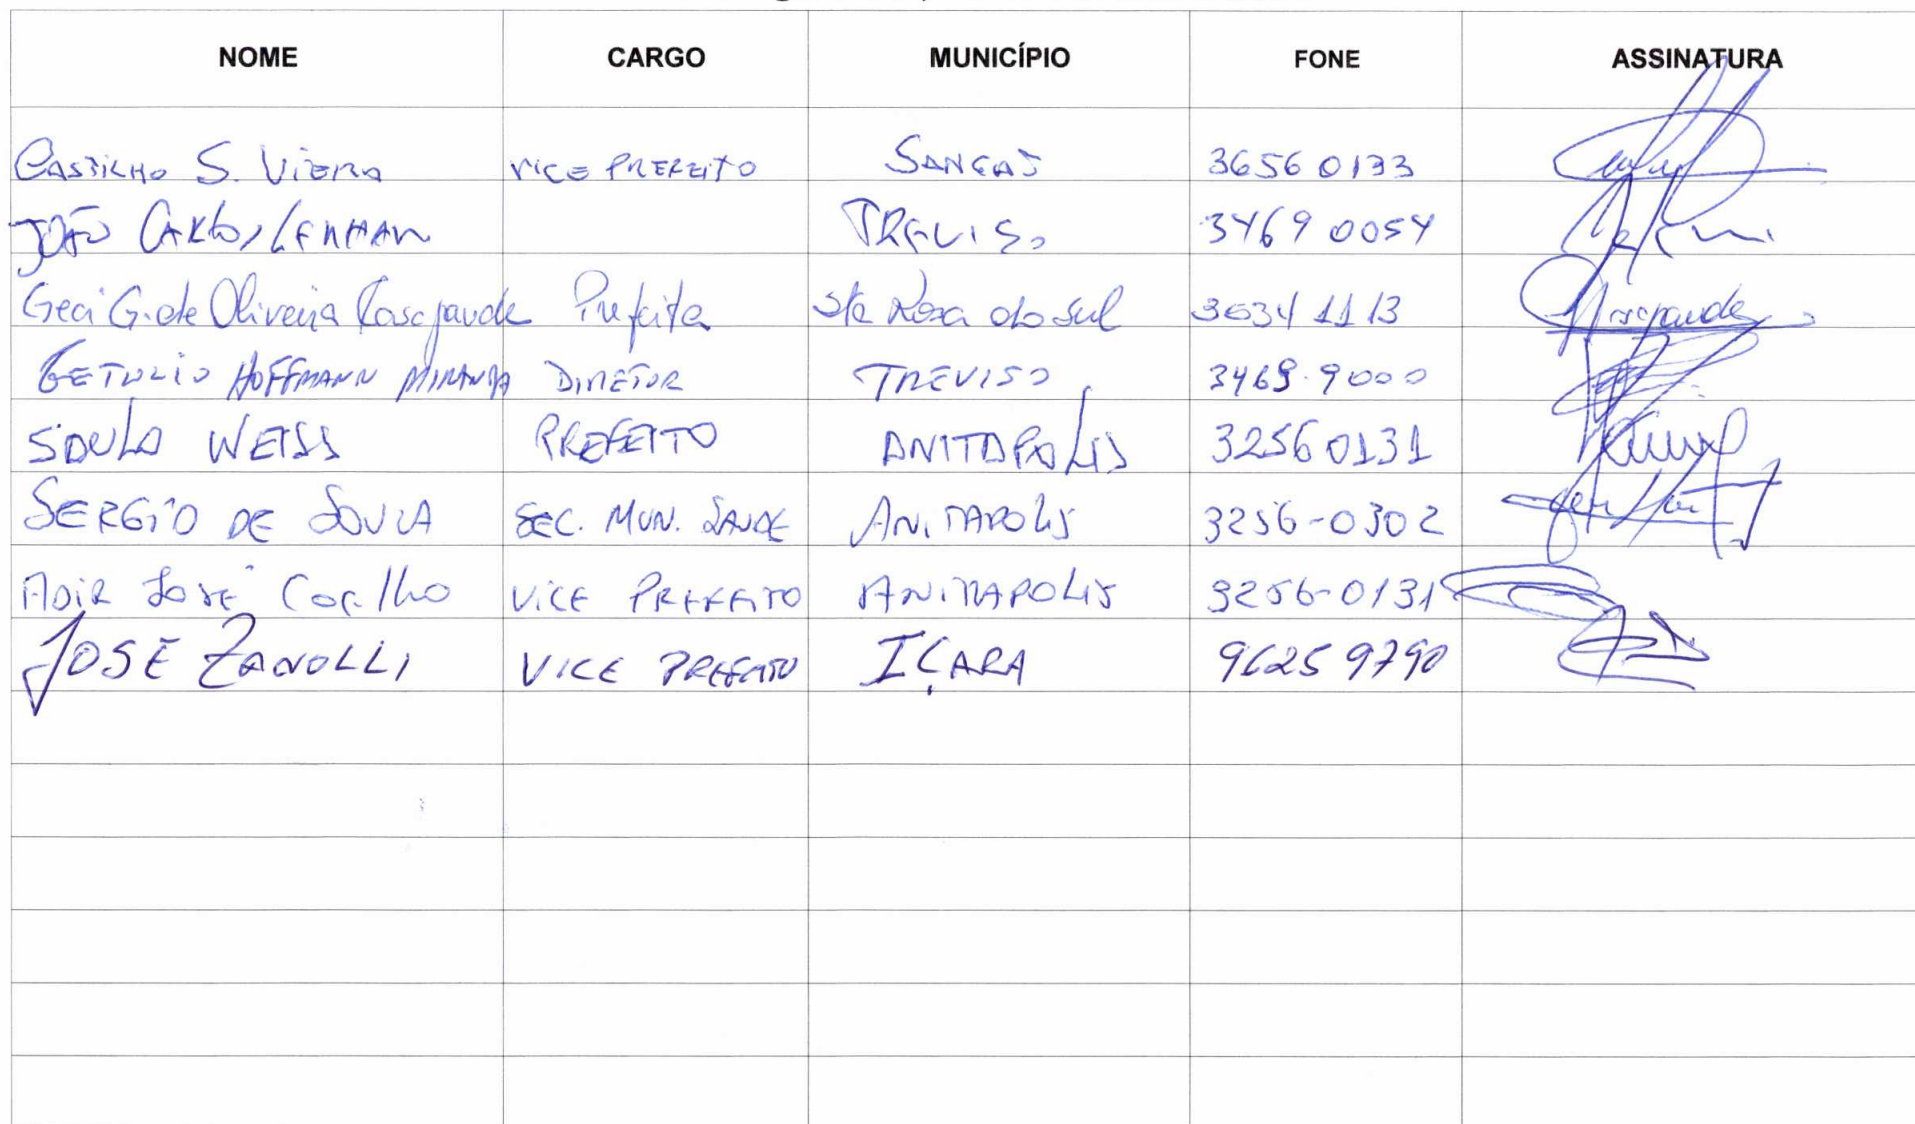 NOME CARGO MUNICÍPIO FONE ASSINATURA
CASTILHO S. VIEIRA VICE PREFEITO SANGAS 3656 0133
JOÃO CARLOS TREVISO 3469 0054
Geci G. de Oliveira Casagrande Prefeita Sta Rosa do Sul 3534 1113
GETULIO HOFFMANN MIRANDA DIRETOR TREVISO 3469.9000
SAULO WEISS PREFEITO ANITAPOLIS 3256 0131
SERGIO DE SOUZA SEC. MUN. SAUDE ANITAPOLIS 3256-0302
ADIR JOSÉ COELHO VICE PREFEITO ANITAPOLIS 3256-0131
JOSÉ ZANOLLI VICE PREFEITO IÇARA 9625 9790